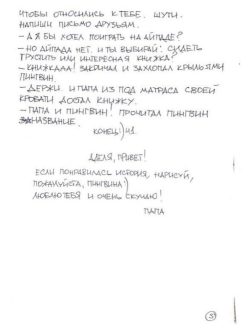 ЧТОБЫ ОТНОСИЛИСЬ К ТЕБЕ. ШУТИ.
НАПИШИ ПИСЬМО ДРУЗЬЯМ.
– А Я БЫ ХОТЕЛ ПОИГРАТЬ НА АЙПАДЕ?
– НО АЙПАДА НЕТ. И ТЫ ВЫБИРАЙ: СИДЕТЬ
ГРУСТИТЬ ИЛИ ИНТЕРЕСНАЯ КНИЖКА?
– КНИЖКААА! ЗАКРИЧАЛ И ЗАХЛОПАЛ КРЫЛЬЯМИ
ПИНГВИН
– ДЕРЖИ. И ПАПА ИЗ ПОД МАТРАСА СВОЕЙ
КРОВАТИ ДОСТАЛ КНИЖКУ.
– ПАПА И ПИНГВИН! ПРОЧИТАЛ ПИНГВИН
НАЗВАНИЕ.
КОНЕЦ:) Ч1.
ПРИВЕТ!
ЕСЛИ ПОНРАВИЛАСЬ ИСТОРИЯ, НАРИСУЙ,
ПОЖАЛУЙСТА, ПИНГВИНА:)
ЛЮБЛЮ ТЕБЯ И ОЧЕНЬ СКУЧАЮ!
ПАПА